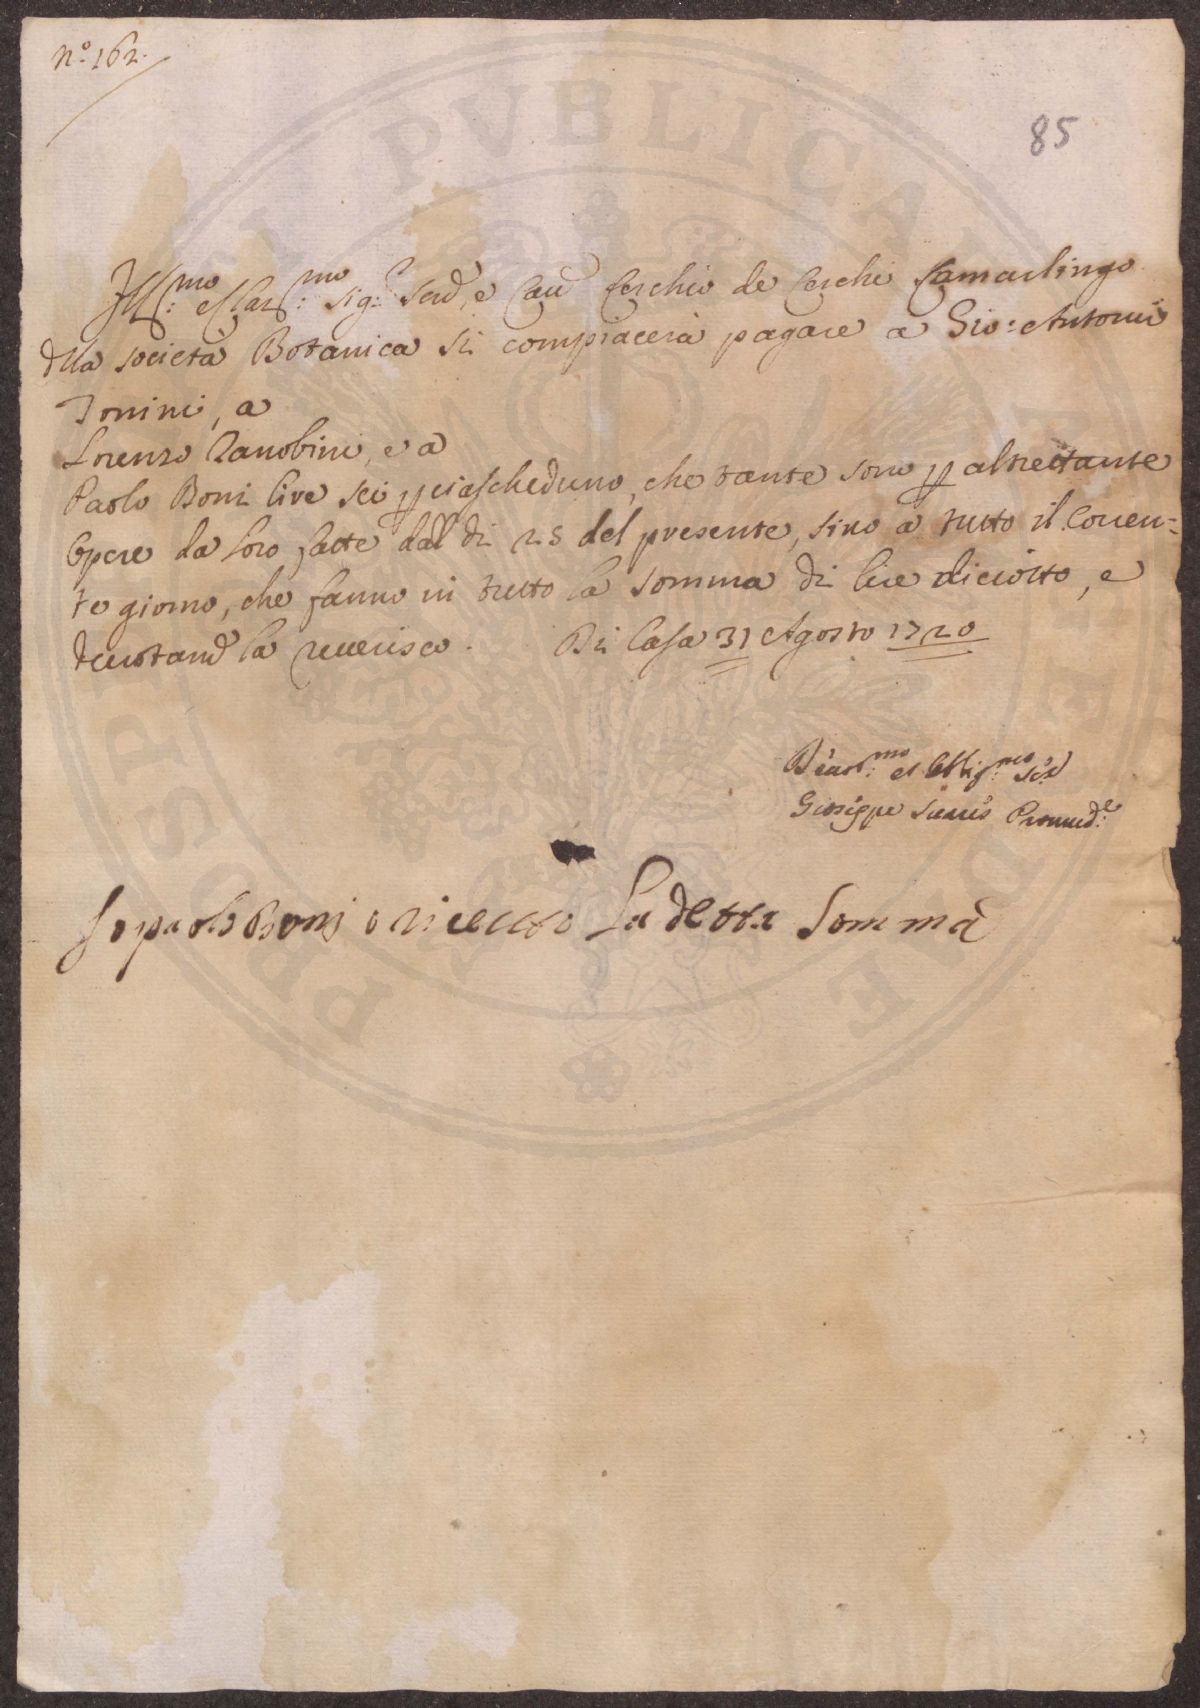 N.º 162.
85
Ill:mo e Clar:mo Sig:r Send.e, e Cau Cerchio de Cerchi Camarlingo
della società Botanica Si compiacerà pagare a Gio: Antonio
Tonini, a
Lorenzo Zanobini, e a
Paolo Boni lire sei p ciascheduno, che tante sono p altrettante
Opere da loro fatte dal dì 25 del presente, sino a tutto il Corren=
te giorno, che fanno in tutto la Somma di lire diciotto, e
la reuerisco. Di Casa 31 Agosto 1720
Deuot:mo et Obblig:mo
Giuseppe Proued:e
Io paolo Boni o riceuto La detta Somma
PROSPERITATI PVBLICAE